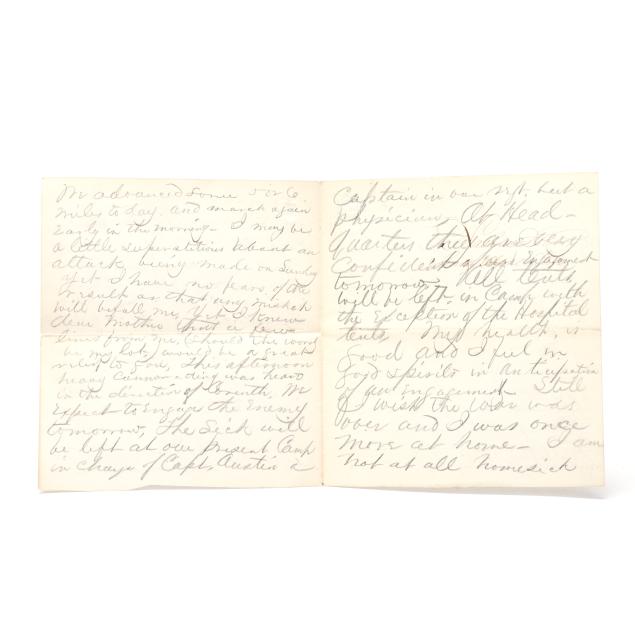 We advanced some 5 or 6
miles to day. and march again
early in the morning - I may be
a little superstitious about an
attack, being made on Sunday
yet I have no fears of the
result or that any mishap
will befall me, yet I knew
dear Mother that a few
lines from me, should the worst
be my lot, would be a great
relief to you. This afternoon
heavy cannonading was heard
in the direction of Corinth, We
Expect to Engage the Enemy
tomorrow, The Sick will
be left at our present Camp
in charge of Capt. Austin a
Captain in our regt. but a
physician, At Head-
quarters they are very
confident of an Engagement
tomorrow - All tents
will be left in Camp with
the Exception of the Hospital
tents My health, is
good and I feel in
good spirits in Anticipation
of an Engagement - Still
I wish the war was
over and I was once
more at home - I am
not at all homesick